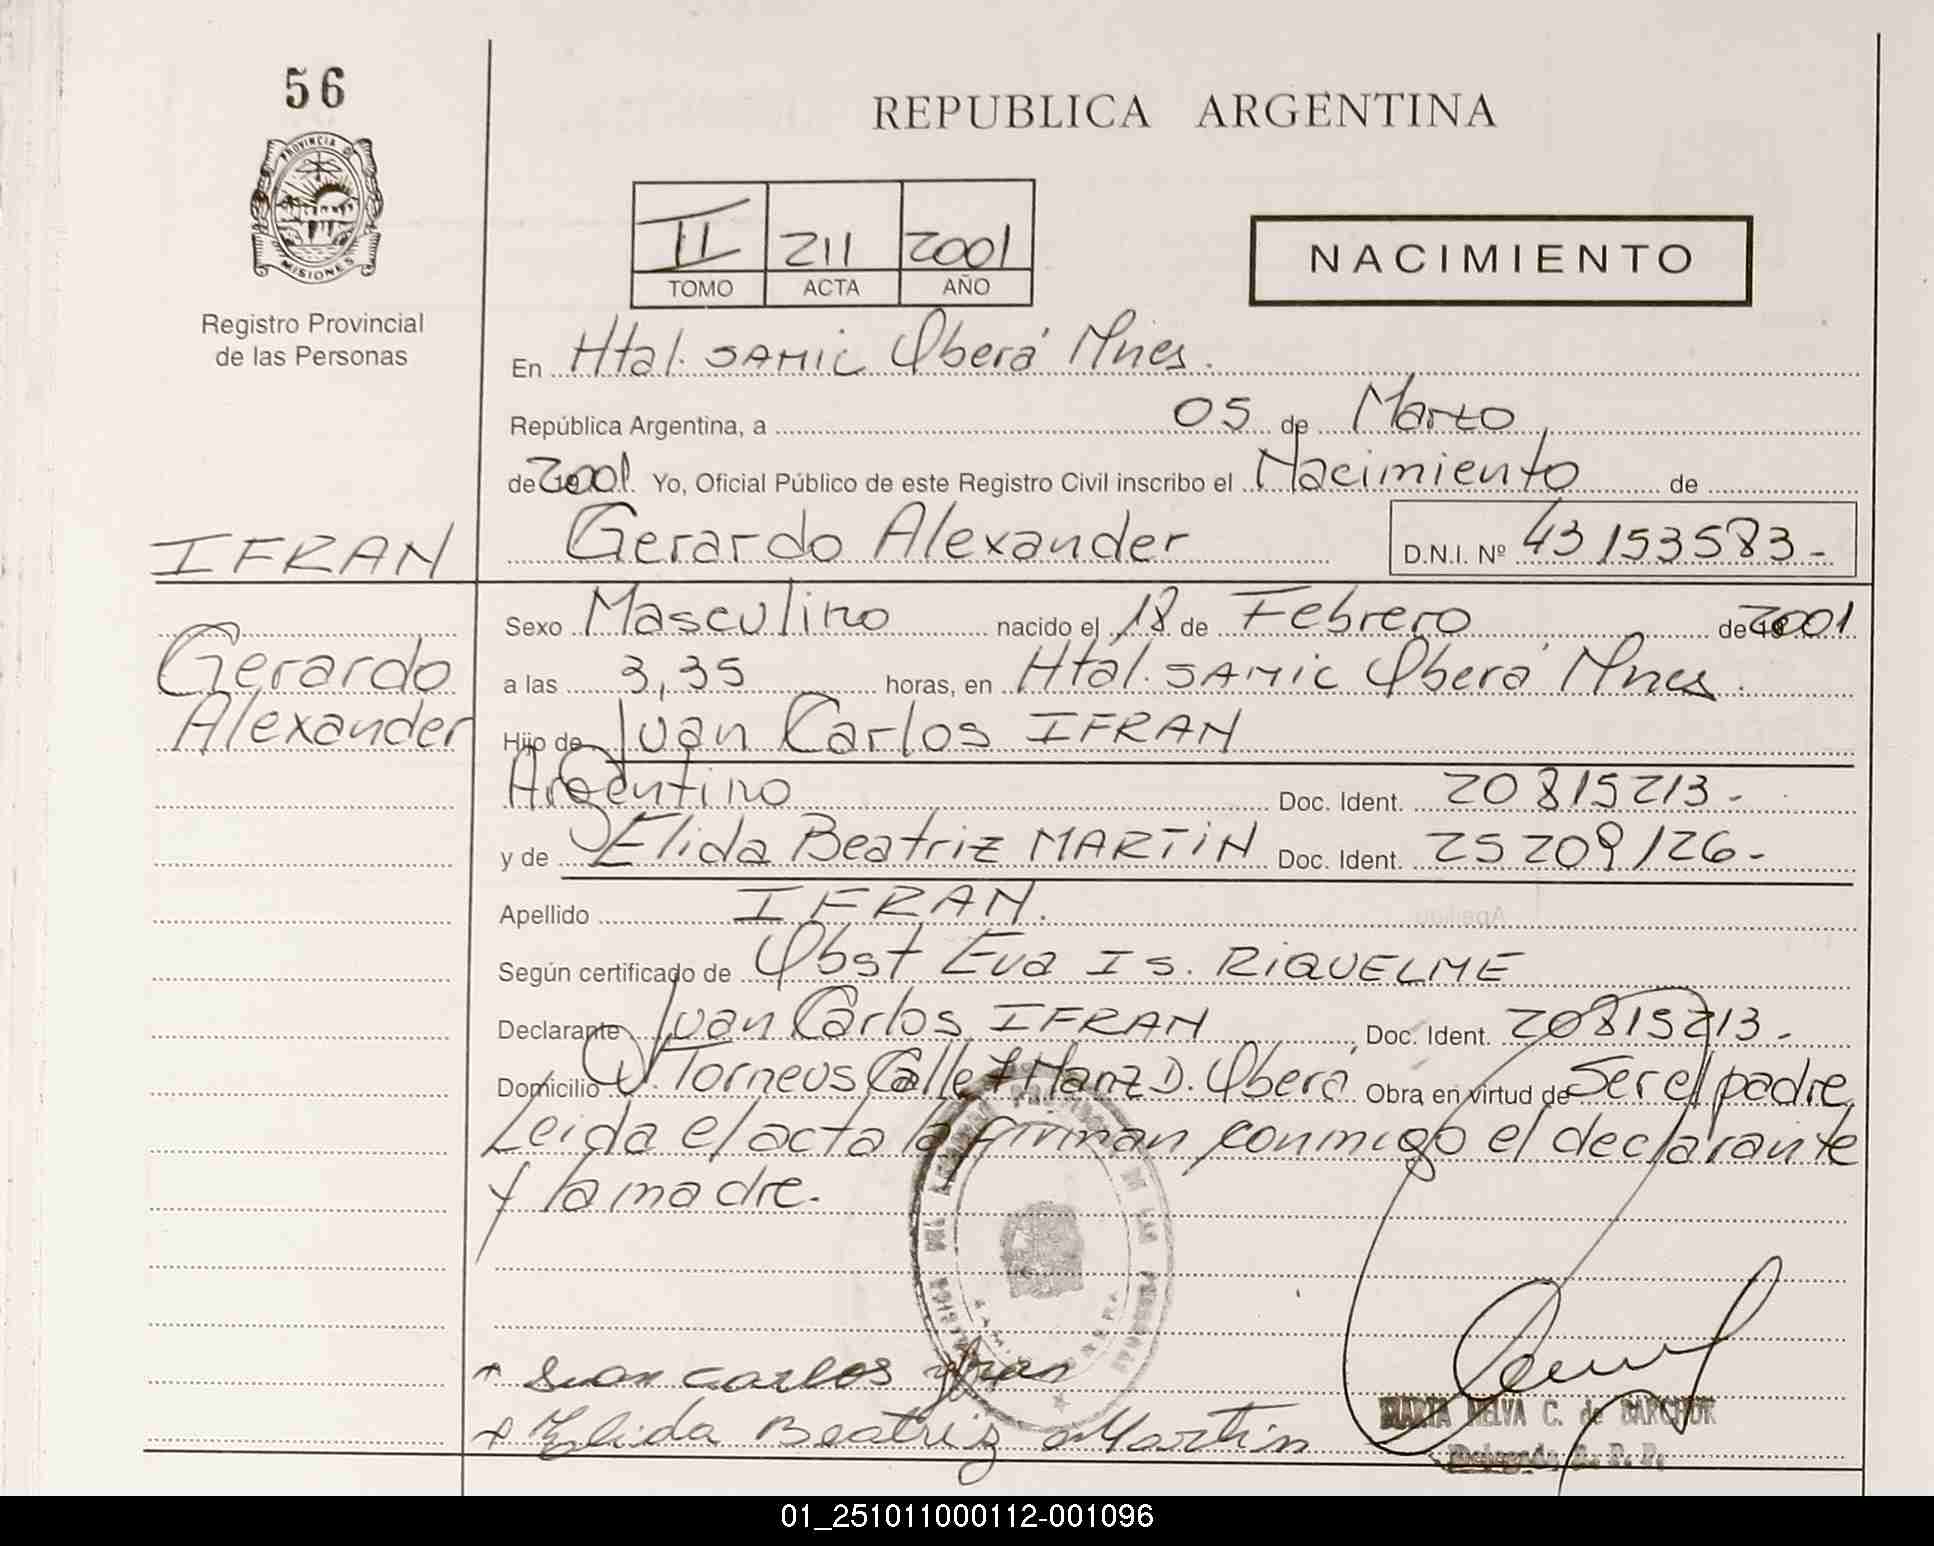 56
PROVINCIA DE
MISIONES
Registro Provincial
de las Personas
REPUBLICA ARGENTINA
II 211 2001
TOMO ACTA AÑO
NACIMIENTO
En Htal. SAMIC Oberá Mnes.
República Argentina, a 05 de Marzo
de 2001. Yo, Oficial Público de este Registro Civil inscribo el Nacimiento de
IFRAN
Gerardo Alexander D.N.I. Nº 43153583-
Gerardo
Alexander
Sexo Masculino nacido el 18 de Febrero de 2001
a las 3,35 horas, en Htal. SAMIC Oberá Mnes.
Hijo de Juan Carlos IFRAN
Argentino Doc. Ident. 20815213-
y de Elida Beatriz MARTiN Doc. Ident. 25209126-
Apellido IFRAN.
Según certificado de Obst Eva Is. RiQUELME
Declarante Juan Carlos IFRAN, Doc. Ident. 20815213.
Domicilio V. Torneus Calle Manz D. Oberá Obra en virtud de Ser el padre
Leida el acta la firman conmigo el declarante
y la madre.
Juan carlos yfran
Elida Beatriz Martin
MARTA NELVA C. de
01_251011000112-001096